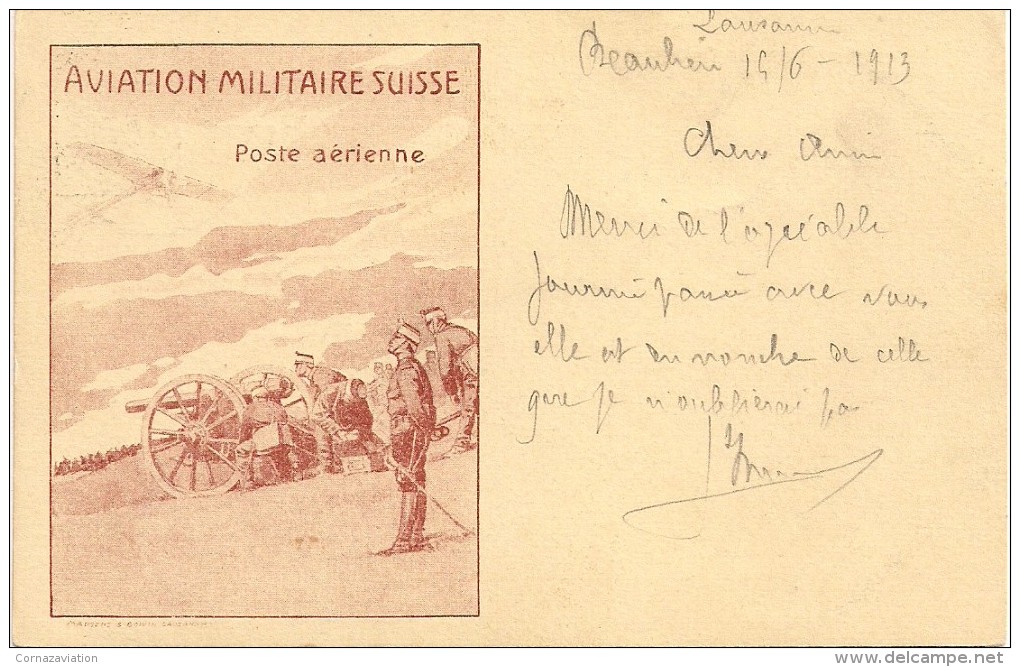 AVIATION MILITAIRE SUISSE
Poste aérienne
Lausanne
Beaulieu 15/6 - 1913
Cher Ami
Merci de l'agréable
journée passée avec vous
elle est du nombre de celle
que je n'oublierai pas
Cornazaviation
http://www.delcampe.net